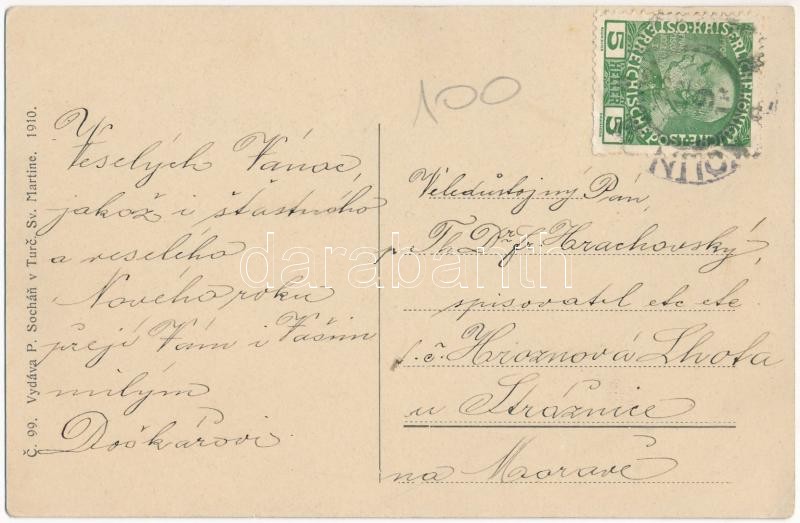 Č. 99. Vydáva P. Socháň v Turč. Sv. Martine. 1910.
Veselých Vánoc,
jakož i šťastného
a veselého
Nového roku
přejí Vám i Vašim
milým
Dočkárovi.
100
Veledůstojný Pán,
Th. Dr. Hrachovský,
spisovatel etc etc
Hroznová Lhota
u Strážnice
na Moravě
5 HELLER 5
darabanth